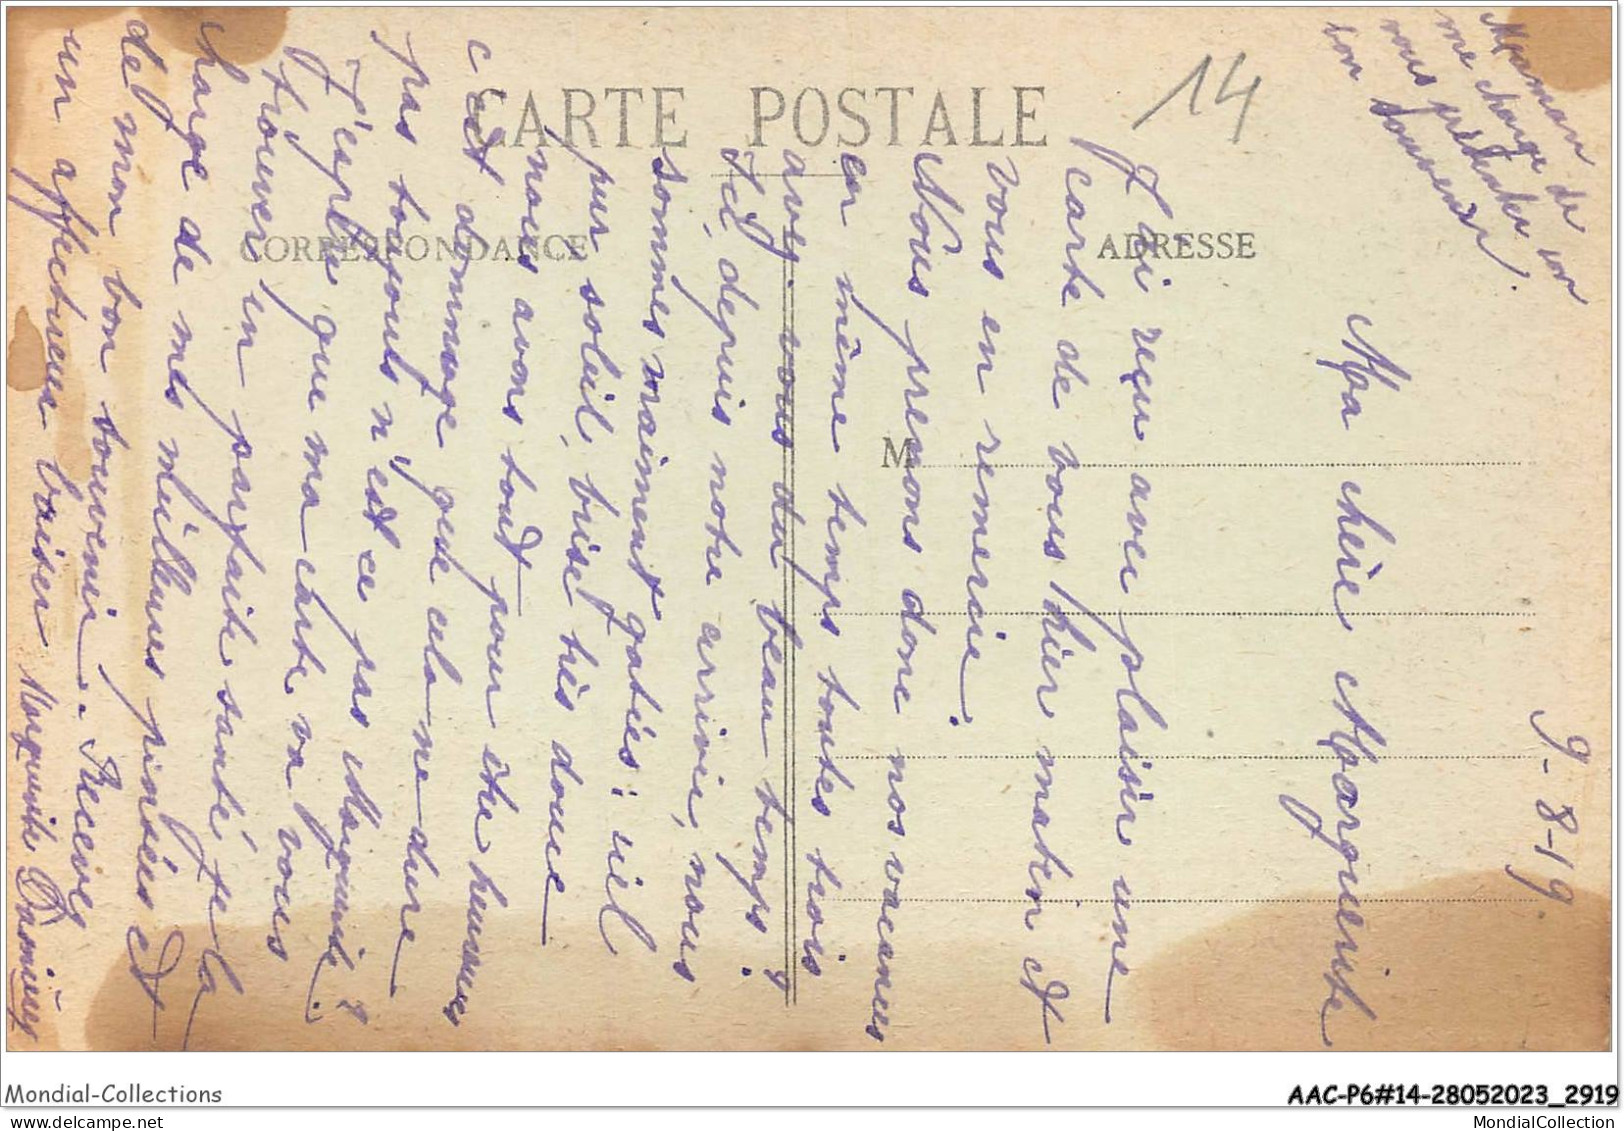 CARTE POSTALE
CORRESPONDANCE
ADRESSE
M
14
9-8-19
Ma chère Marguerite
J'ai reçu avec plaisir une
carte de vous hier matin et
vous en remercie.
Nous prenons donc nos vacances
en même temps toutes trois
avez-vous du beau temps?
Ici, depuis notre arrivée, nous
sommes maiment gatés: ciel
pur soleil, brise très douce
nous avons tout pour être heureuses
c'est dommage que cela ne dure
pas toujours n'est ce pas Marguerite?
J'espère que ma carte va vous
trouver en parfaite santé, je la
charge de mes meilleures pensées et
de mon bon souvenir. Recevez
un affectueux baiser Marguerite
Maman
me charge de
vous présenter son
bon souvenir.
Mondial-Collections
AAC-P6#14-28052023_2919
www.mondial-collection.com
MondialCollection